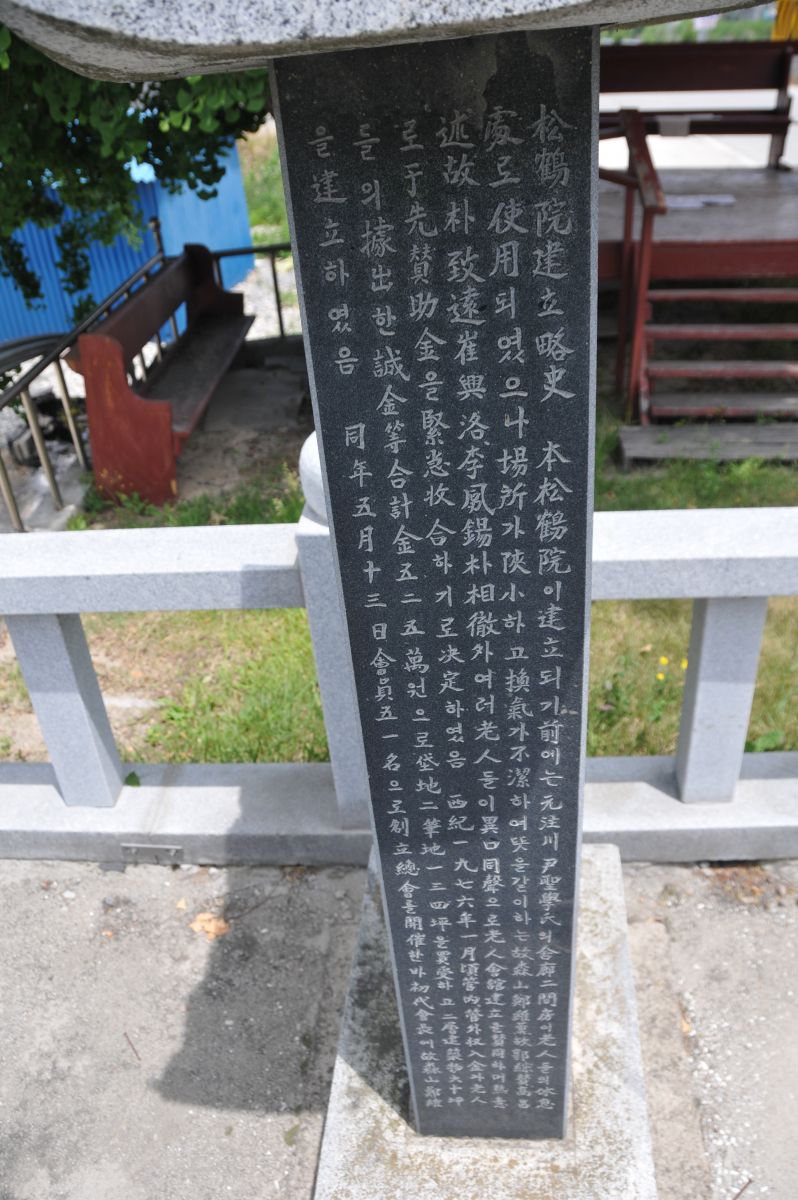 松鶴院建立略史 本松鶴院이建立되기前에는元注川尹聖學氏의舍廊二間房이老人들의休息
處로使用되였으나場所가陜小하고換氣가不潔하여뜻을같이하는故森山鄭 薰故郭 贊高昌
述故朴致遠崔興洛李鳳錫朴相徹外여러老人들이異口同聲으로老人會舘建立을 하여
로于先贊助金을緊急收合하기로決定하였음 西紀一九七六年一月頃管內管外收入金과老人
들의據出한誠金等合計金五二五萬원으로垈地二筆地一三四坪을買受하고二層建築物六十坪
을建立하였음 同年五月十三日會員五一名으로創立總會를開催한바初代會長에故森山鄭